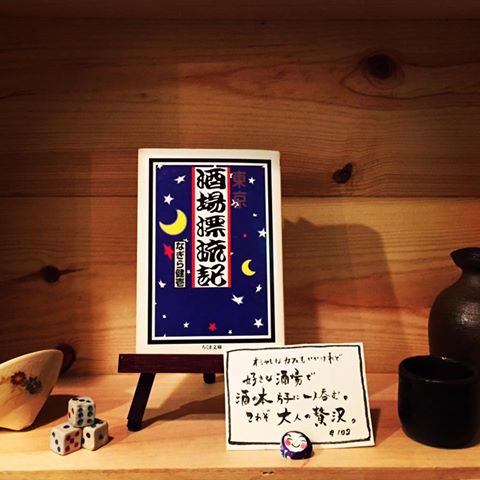 東京
酒場漂流記
なぎら健壱
ちくま文庫
オシャレなカフェもいいけれど
好きな酒場で
酒の本 片手に一人呑む。
これぞ 大人の贅沢。